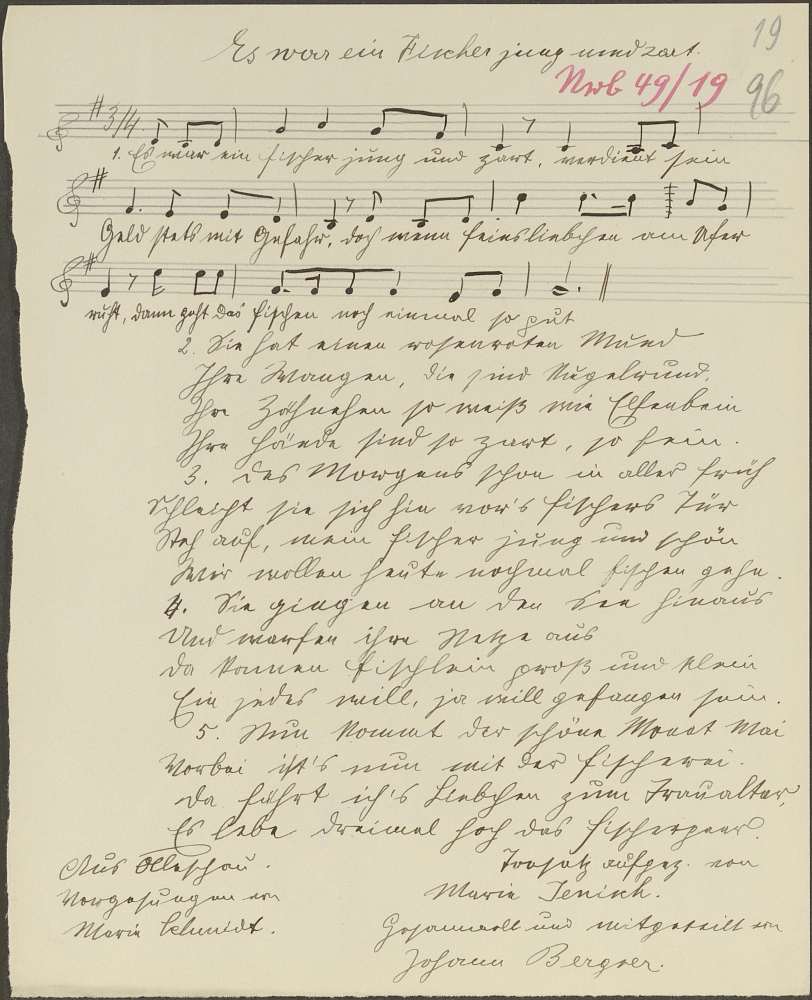 19
Es war ein Fischer jung und zart.
Nrb 49/19
96
3/4.
1. Es war ein Fischer jung und zart, verdient sein
Geld stets mit Gefahr, doch wenn feinsliebchen am Ufer
ruht, dann geht das fischen noch einmal so gut
2. Sie hat einen rosenroten Mund
Ihre Wangen, die sind Kugelrund,
Ihre Zähnchen so weiß wie Elfenbein
Ihre Hände sind so zart, so fein.
3. Des Morgens schon in aller früh
Schleicht sie sich hin vor's Fischers Tür
Steh auf, mein Fischer jung und schön
Wir wollen heute nochmal fischen gehn.
4. Sie gingen an den See hinaus
Und warfen ihre Netze aus
Da kamen Fischlein groß und klein
Ein jedes will, ja will gefangen sein.
5. Nun kommt der schöne Monat Mai
Vorbei ist's nun mit der Fischerei.
Da führt ich's Liebchen zum Traualtar,
Es lebe dreimal hoch das Fischerpaar.
Aus Olleschau.
Vorgesungen von
Marie Schmidt.
Tonsatz aufgez. von
Marie Jenisch.
Gesammelt und mitgeteilt von
Johann Bergner.